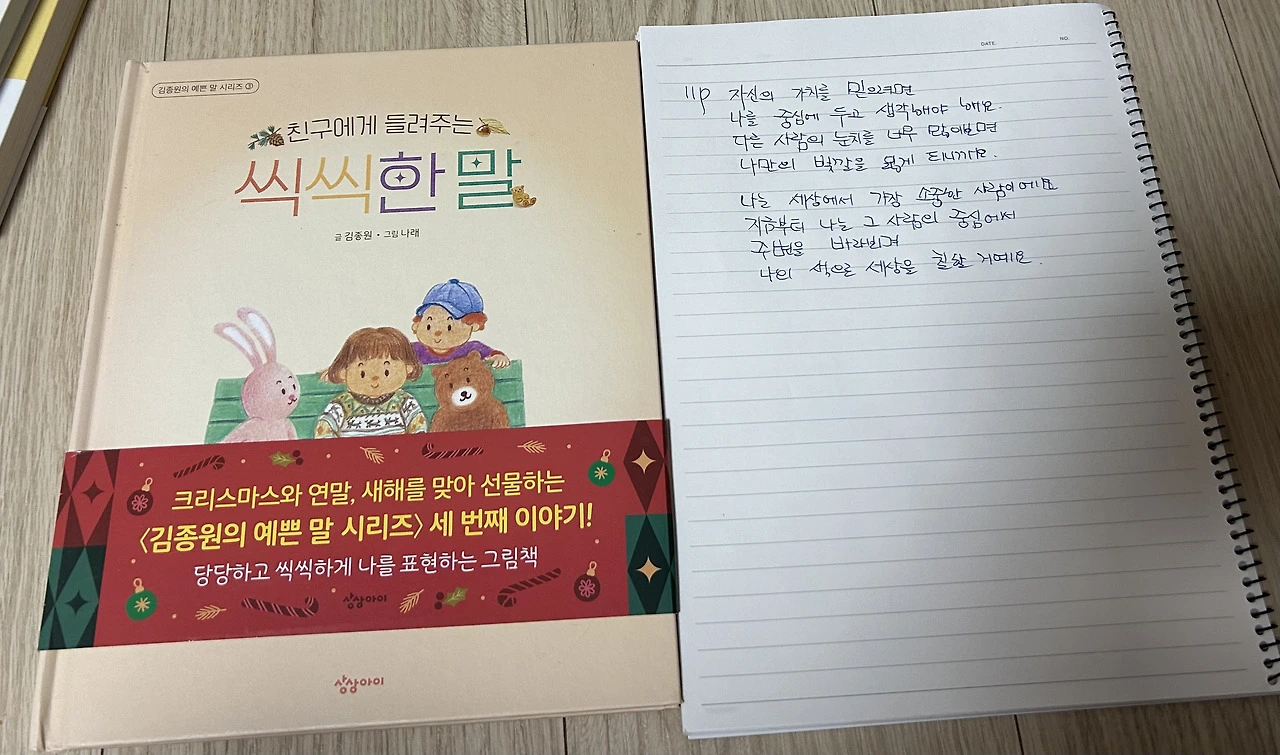 김종원의 예쁜 말 시리즈 ③
친구에게 들려주는
씩씩한 말
글 김종원 · 그림 나래
크리스마스와 연말, 새해를 맞아 선물하는
〈김종원의 예쁜 말 시리즈〉 세 번째 이야기!
당당하고 씩씩하게 나를 표현하는 그림책
상상아이
상상아이
DATE. NO.
11p 자신의 가치를 믿으려면
나를 중심에 두고 생각해야 해요.
다른 사람의 눈치를 너무 많이보면
나만의 빛깔을 잃게 되니까요.
나는 세상에서 가장 소중한 사람이에요
지금부터 나는 그 사람의 중심에서
주변을 바라보며
나의 색으로 세상을 칠할 거예요.